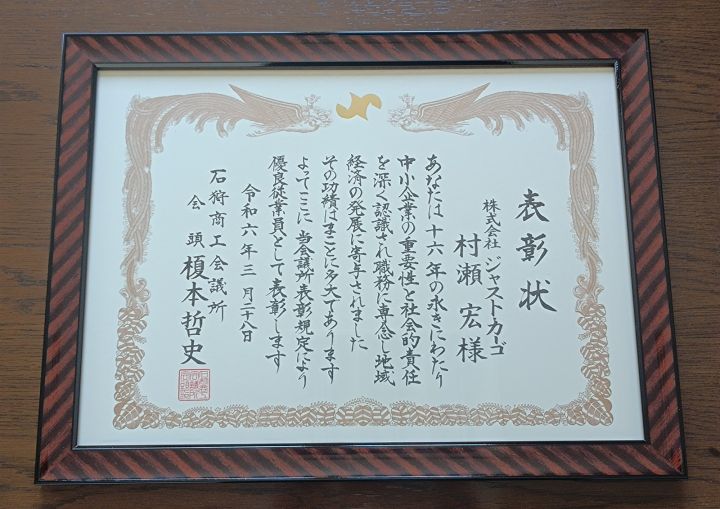 表彰状
株式会社 ジャストカーゴ
村瀬 宏 様
あなたは十六年の永きにわたり
中小企業の重要性と社会的責任
を深く認識され職務に専念し地域
経済の発展に寄与されました
その功績はまことに多大であります
よってここに当会議所表彰規定により
優良従業員として表彰します
令和六年三月二十八日
石狩商工会議所
会頭 榎本哲史